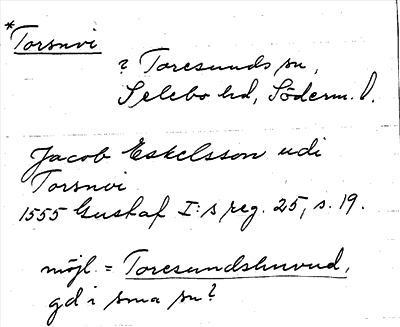 *Torsnvi
? Toresunds sn,
Selebo hd, Söderm. l.
Jacob Eskelsson udi
Torsnvi
1555 Gustaf I:s reg. 25, s. 19.
möjl. = Toresundshuvud,
gd i sma sn?